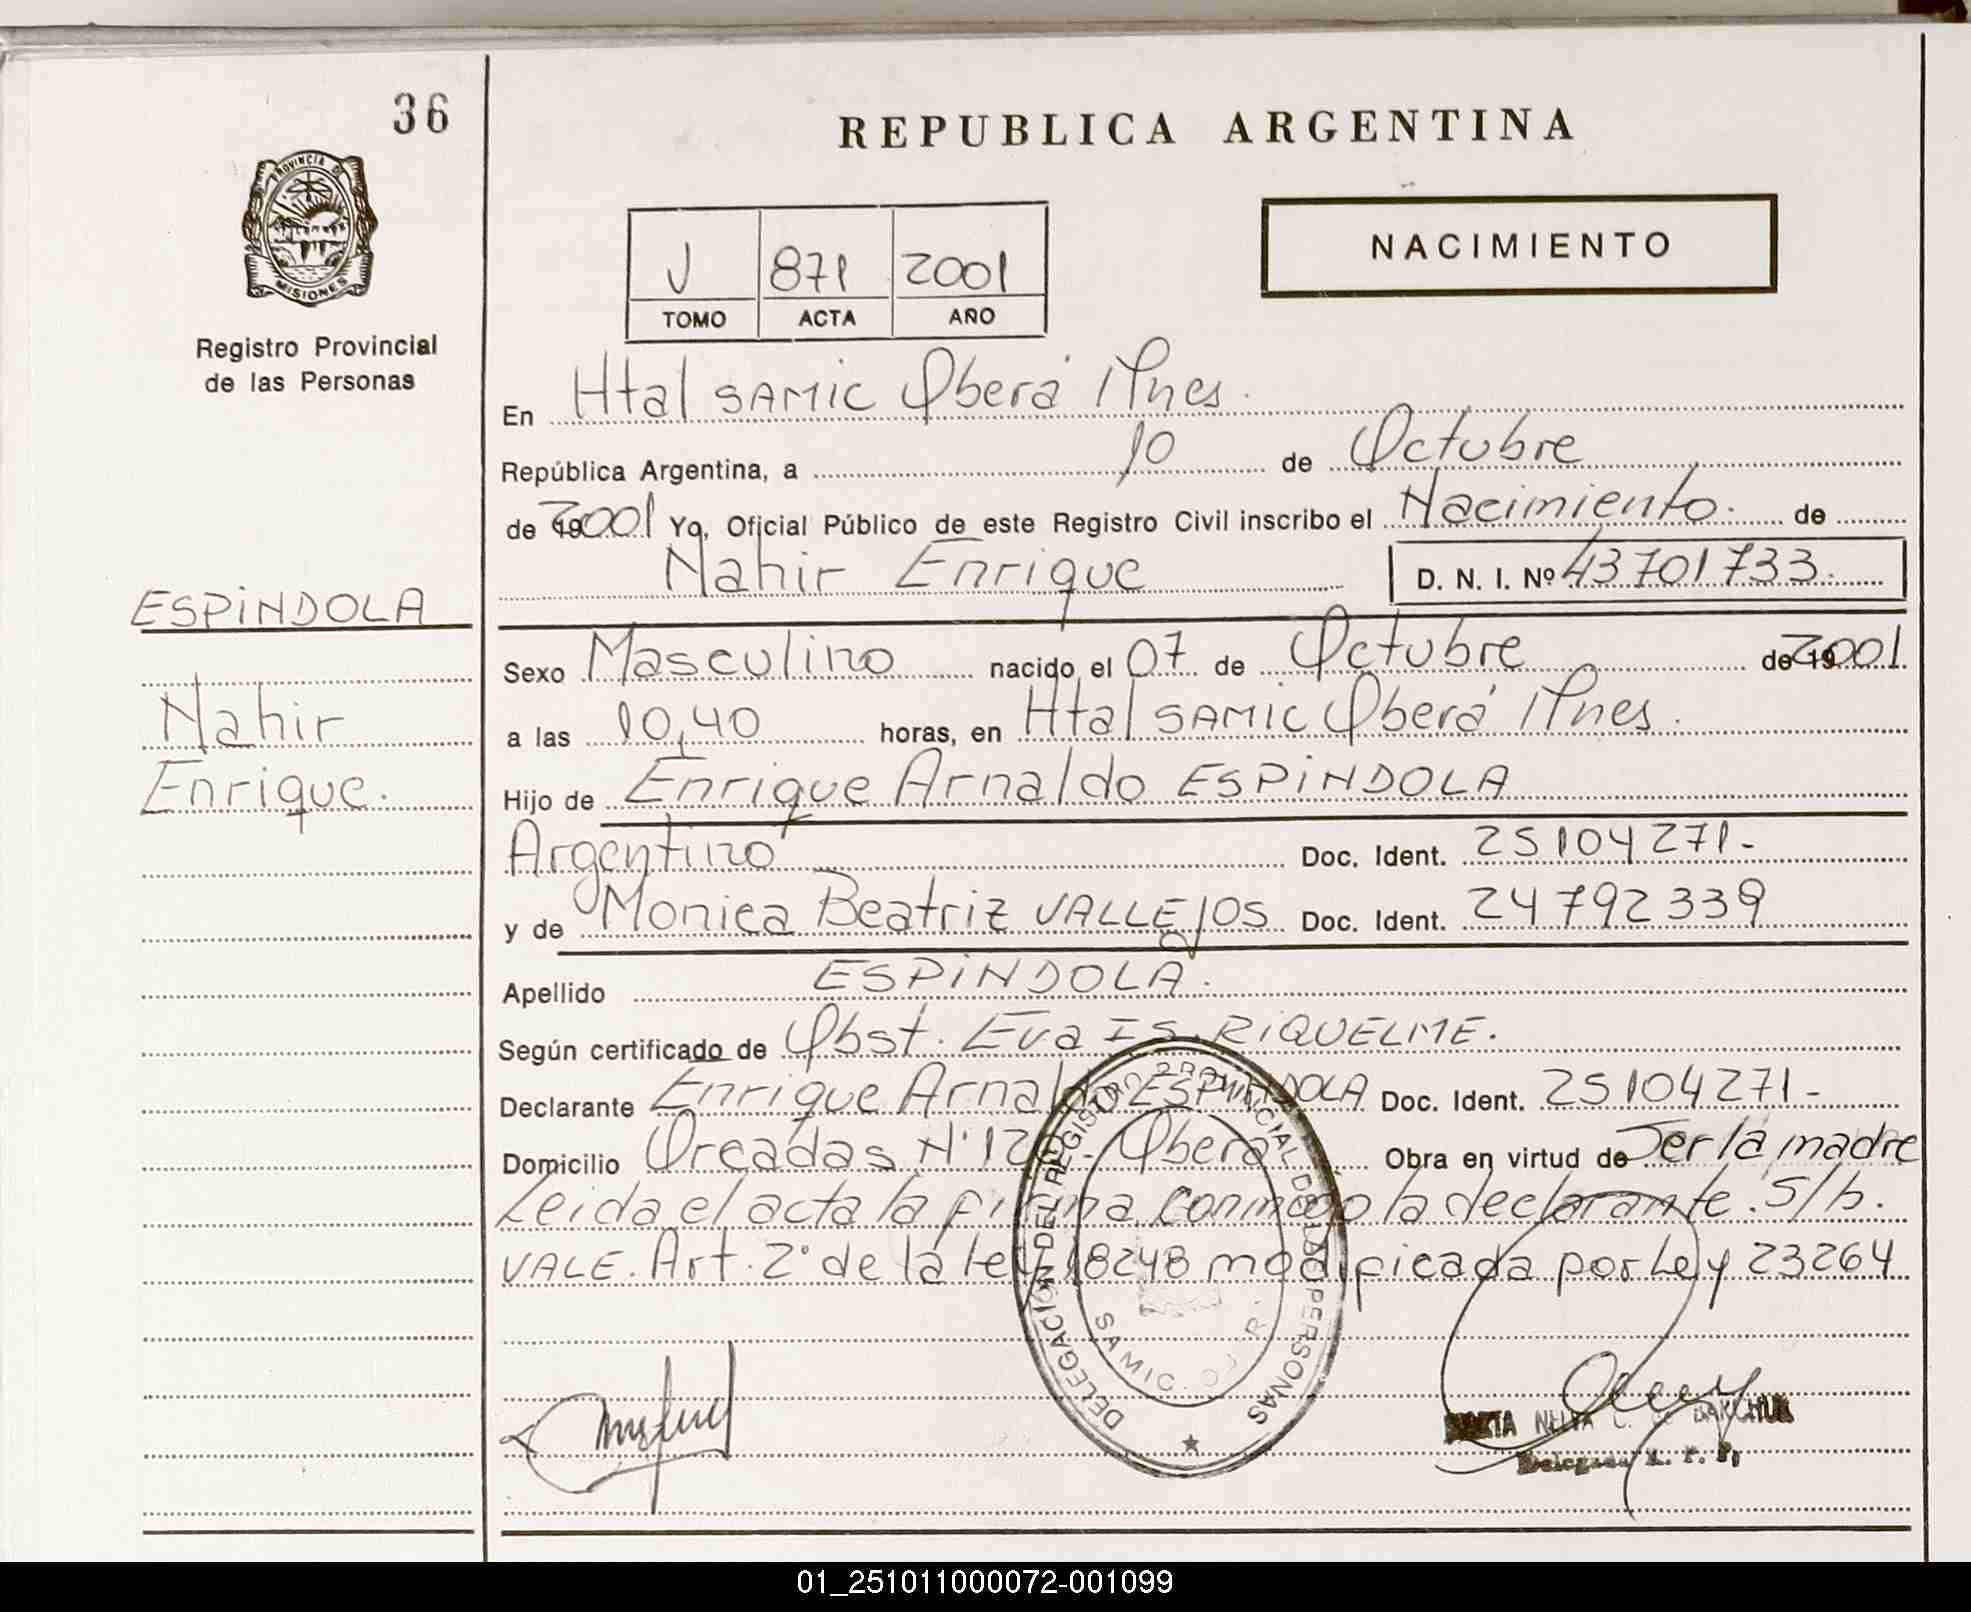 36
REPUBLICA ARGENTINA
PROVINCIA DE
MISIONES
Registro Provincial
de las Personas
NACIMIENTO
J 871 2001
TOMO ACTA AÑO
En Htal SAMIC Oberá Mnes.
República Argentina, a 10 de Octubre
de 19 2001 Yo, Oficial Público de este Registro Civil inscribo el Nacimiento. de
Nahir Enrique D. N. I. Nº 43701733.
ESPINDOLA
Nahir
Enrique.
Sexo Masculino nacido el 07 de Octubre de 19 2001.
a las 10,40 horas, en Htal SAMIC Oberá Mnes.
Hijo de Enrique Arnaldo ESPINDOLA
Argentino Doc. Ident. 25104271-
y de Monica Beatriz VALLEJOS Doc. Ident. 24792339
Apellido ESPINDOLA.
Según certificado de Obst. Eva IS. RIQUELME.
Declarante Enrique Arnaldo ESPINDOLA Doc. Ident. 25104271-
Domicilio Orcadas Nº Oberá Obra en virtud de Ser la madre
Leida el acta la firma conmigo la declarante. S/b.
VALE. Art. 2º de la ley 18248 modificada por Ley 23264
DELEGACION DEL REGISTRO PROVINCIAL DE LAS PERSONAS
SAMIC
NELIDA
Delegada R. P. P.
01_251011000072-001099